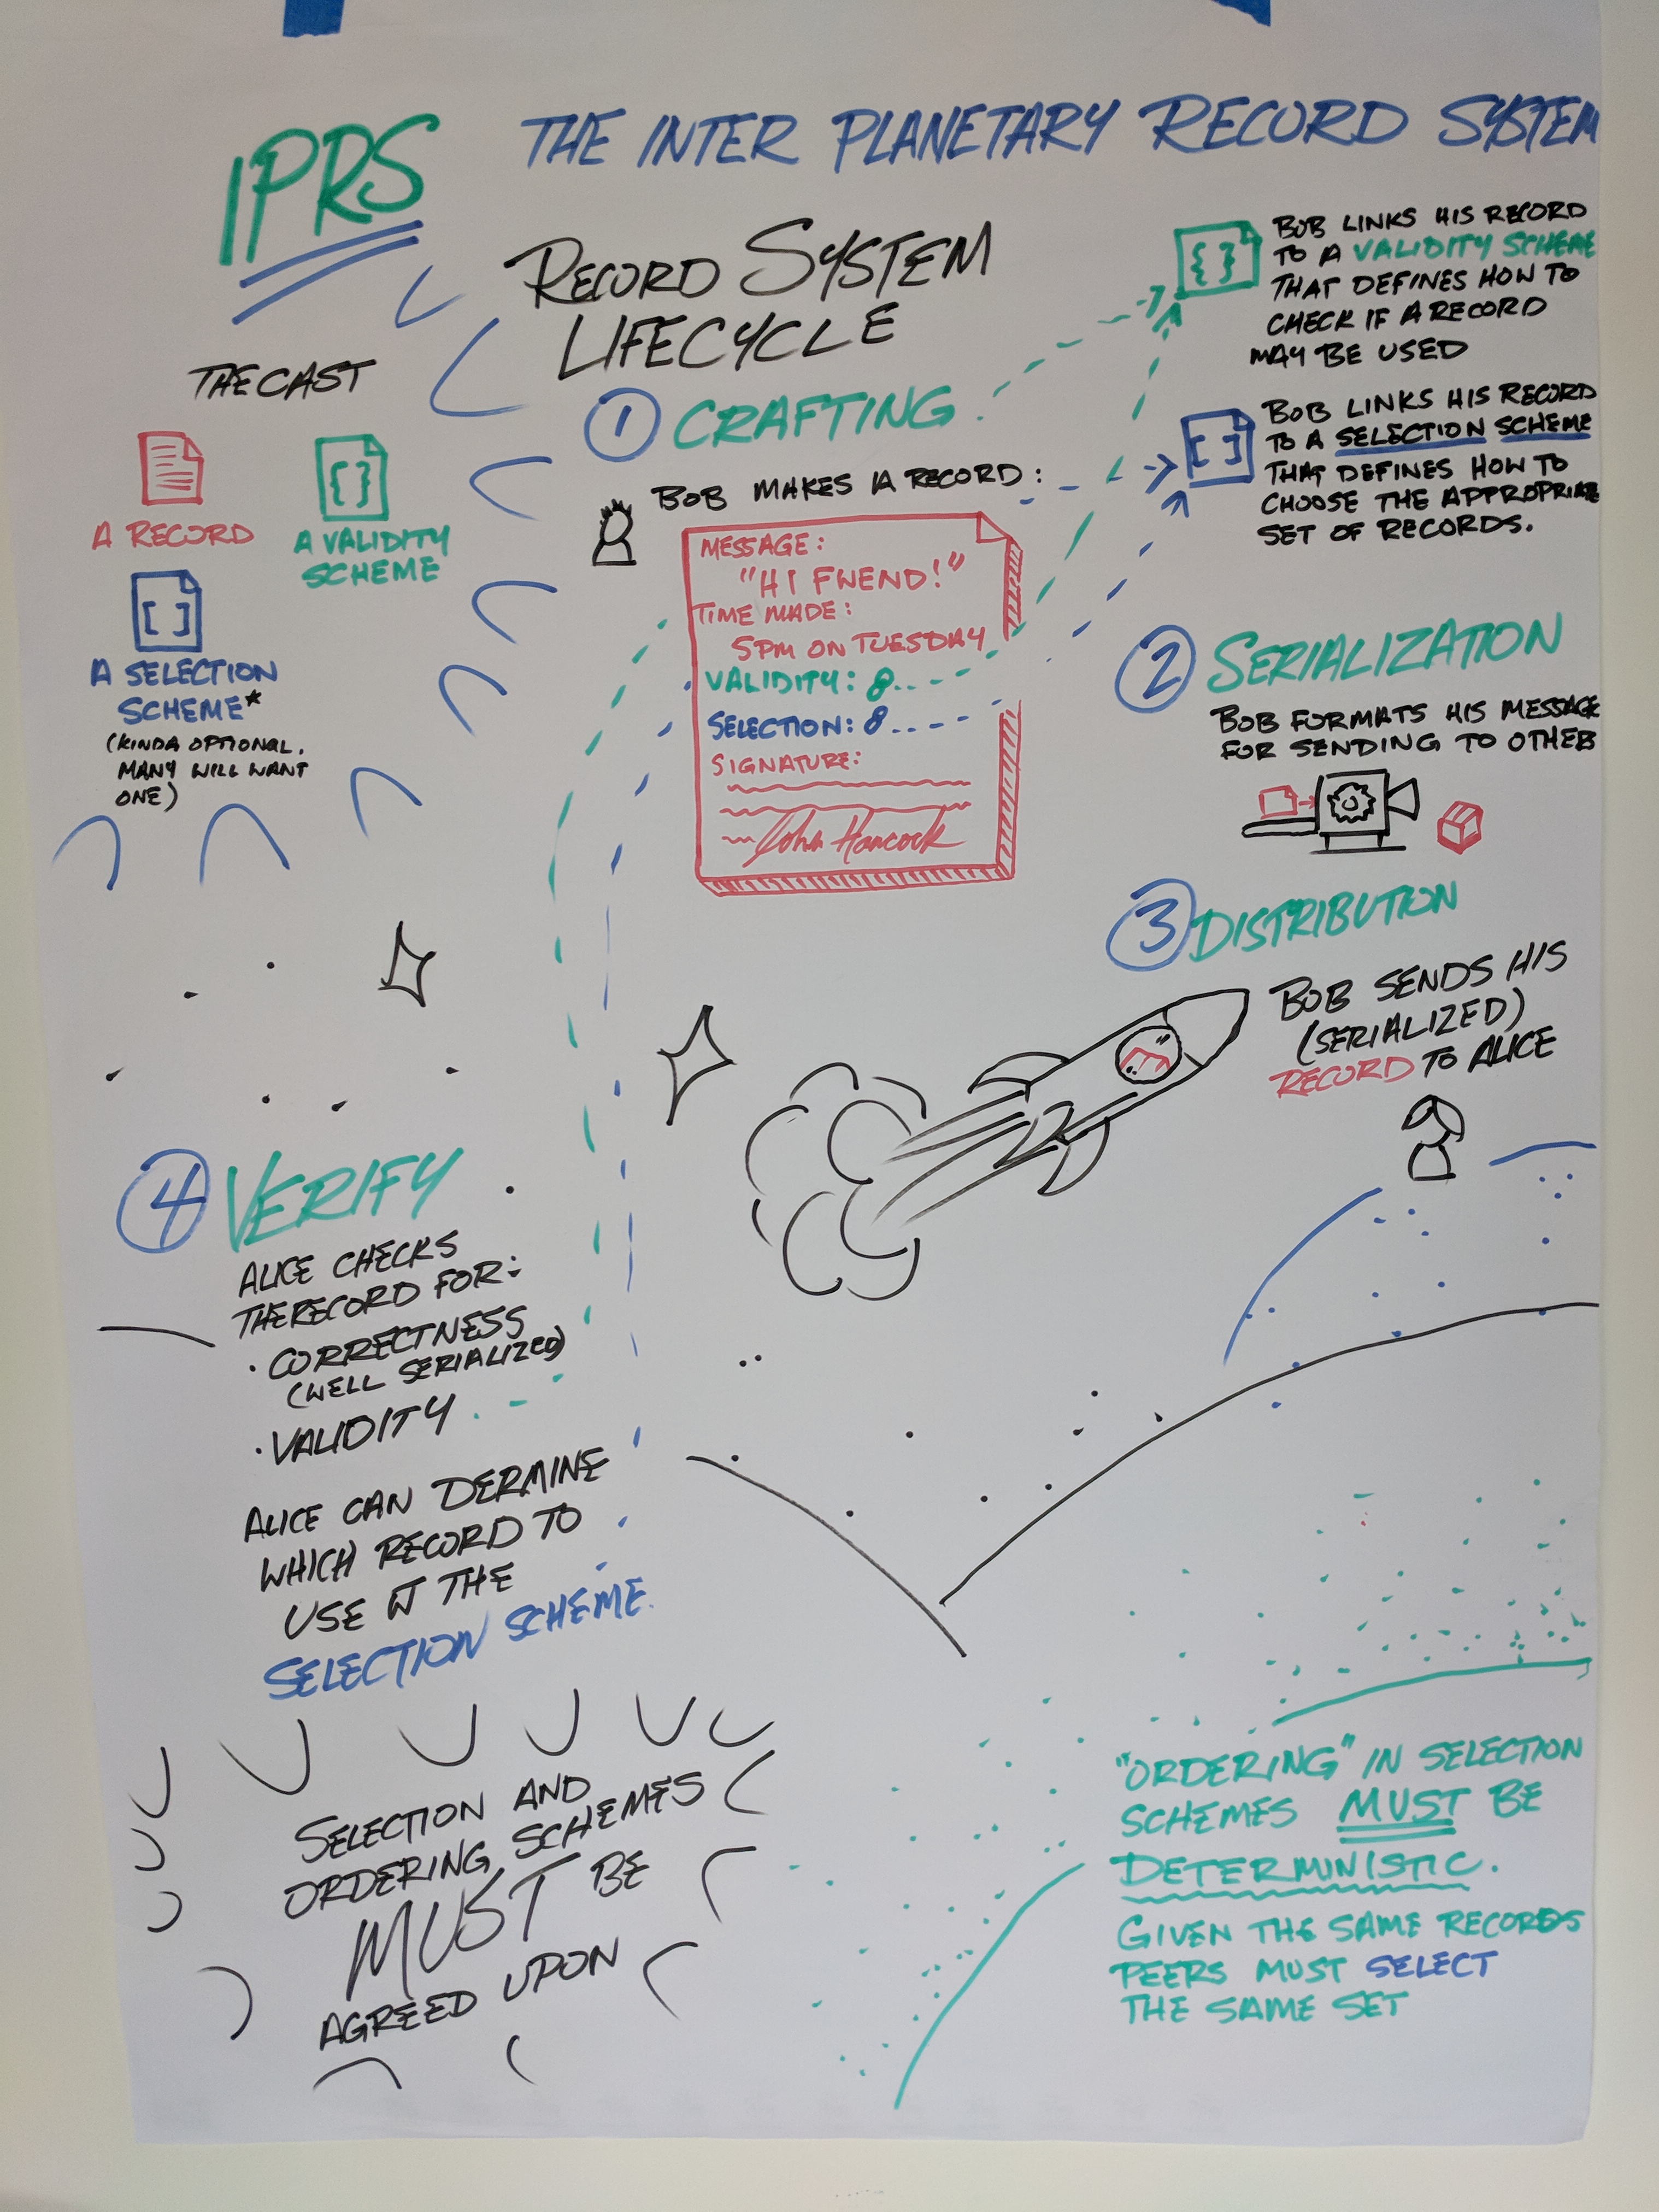 IPRS
THE INTER PLANETARY RECORD SYSTEM
RECORD SYSTEM
LIFECYCLE
THE CAST
A RECORD
A VALIDITY
SCHEME
A SELECTION
SCHEME*
(KINDA OPTIONAL.
MANY WILL WANT
ONE)
1 CRAFTING
BOB MAKES A RECORD:
MESSAGE:
"HI FWEND!"
TIME MADE:
5PM ON TUESDAY
VALIDITY:
SELECTION:
SIGNATURE:
John Hancock
{ }
BOB LINKS HIS RECORD
TO A VALIDITY SCHEME
THAT DEFINES HOW TO
CHECK IF A RECORD
MAY BE USED
[ ]
BOB LINKS HIS RECORD
TO A SELECTION SCHEME
THAT DEFINES HOW TO
CHOOSE THE APPROPRIATE
SET OF RECORDS.
2 SERIALIZATION
BOB FORMATS HIS MESSAGE
FOR SENDING TO OTHER
3 DISTRIBUTION
BOB SENDS HIS
(SERIALIZED)
RECORD TO ALICE
4 VERIFY
ALICE CHECKS
THE RECORD FOR:
· CORRECTNESS
(WELL SERIALIZED)
· VALIDITY
ALICE CAN DERMINE
WHICH RECORD TO
USE W THE
SELECTION SCHEME.
SELECTION AND
ORDERING SCHEMES
MUST BE
AGREED UPON
"ORDERING" IN SELECTION
SCHEMES MUST BE
DETERMINISTIC.
GIVEN THE SAME RECORDS
PEERS MUST SELECT
THE SAME SET